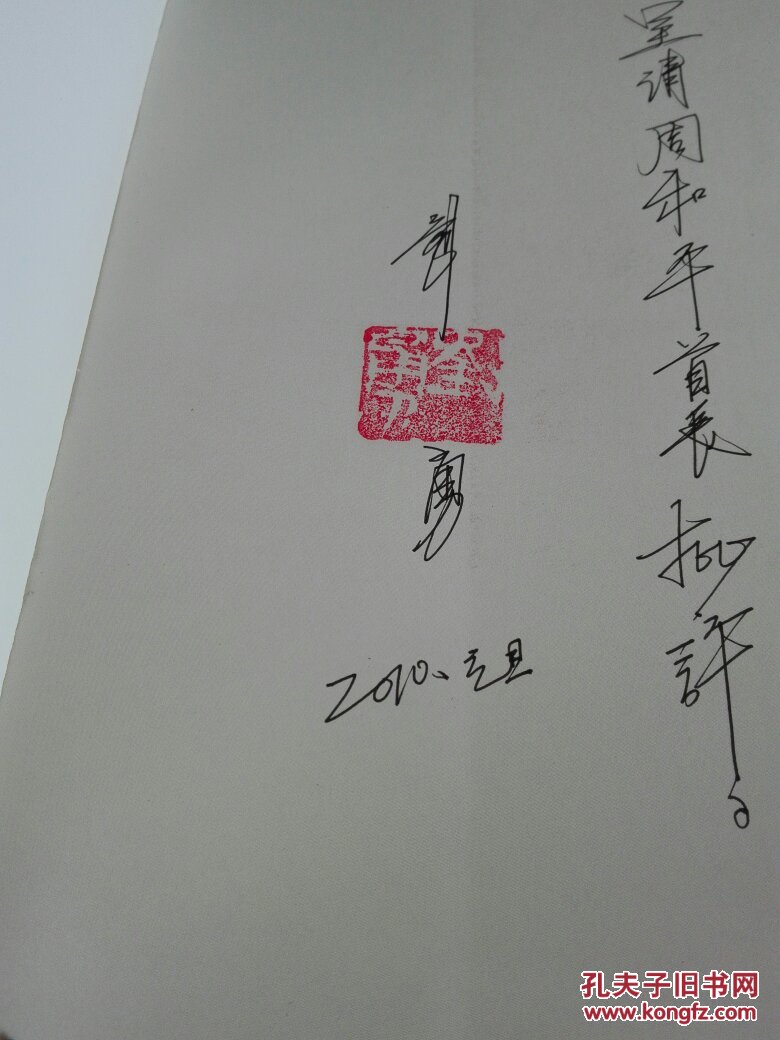 呈请周和平首长批评。
勇
2010、元旦
孔夫子旧书网
www.kongfz.com